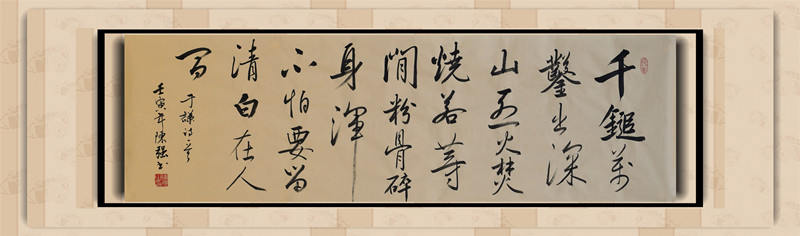 千鎚萬
鑿出深
山烈火焚
燒若等
閒粉骨碎
身渾
不怕要留
清白在人
間
于謙詩一首
壬寅年陳強書